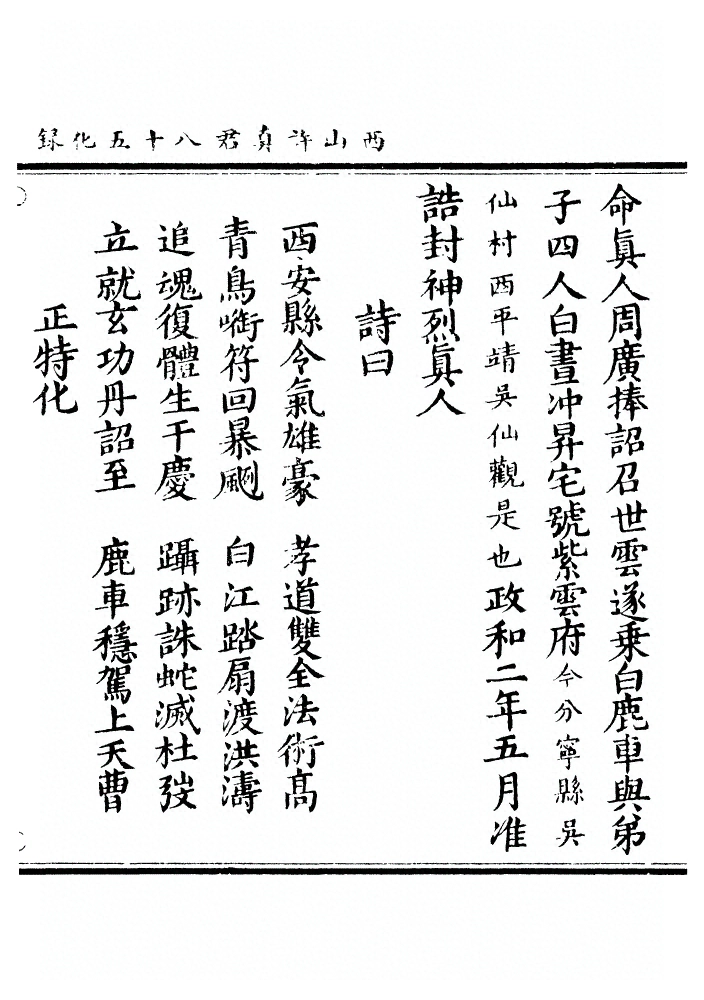 西山許真君八十五化録
命眞人周廣捧詔召世雲遂乗白鹿車與弟
子四人白晝冲昇宅號紫雲府今分寧縣吳
仙村西平靖吳仙觀是也政和二年五月准
誥封神烈眞人
詩曰
西安縣令氣雄豪　孝道雙全法術髙
青鳥㘅符回暴颶　白江踏扇渡洪濤
追魂復體生干慶　躡跡誅蛇滅杜弢
立就玄功丹詔至　鹿車穩駕上天曹
正特化